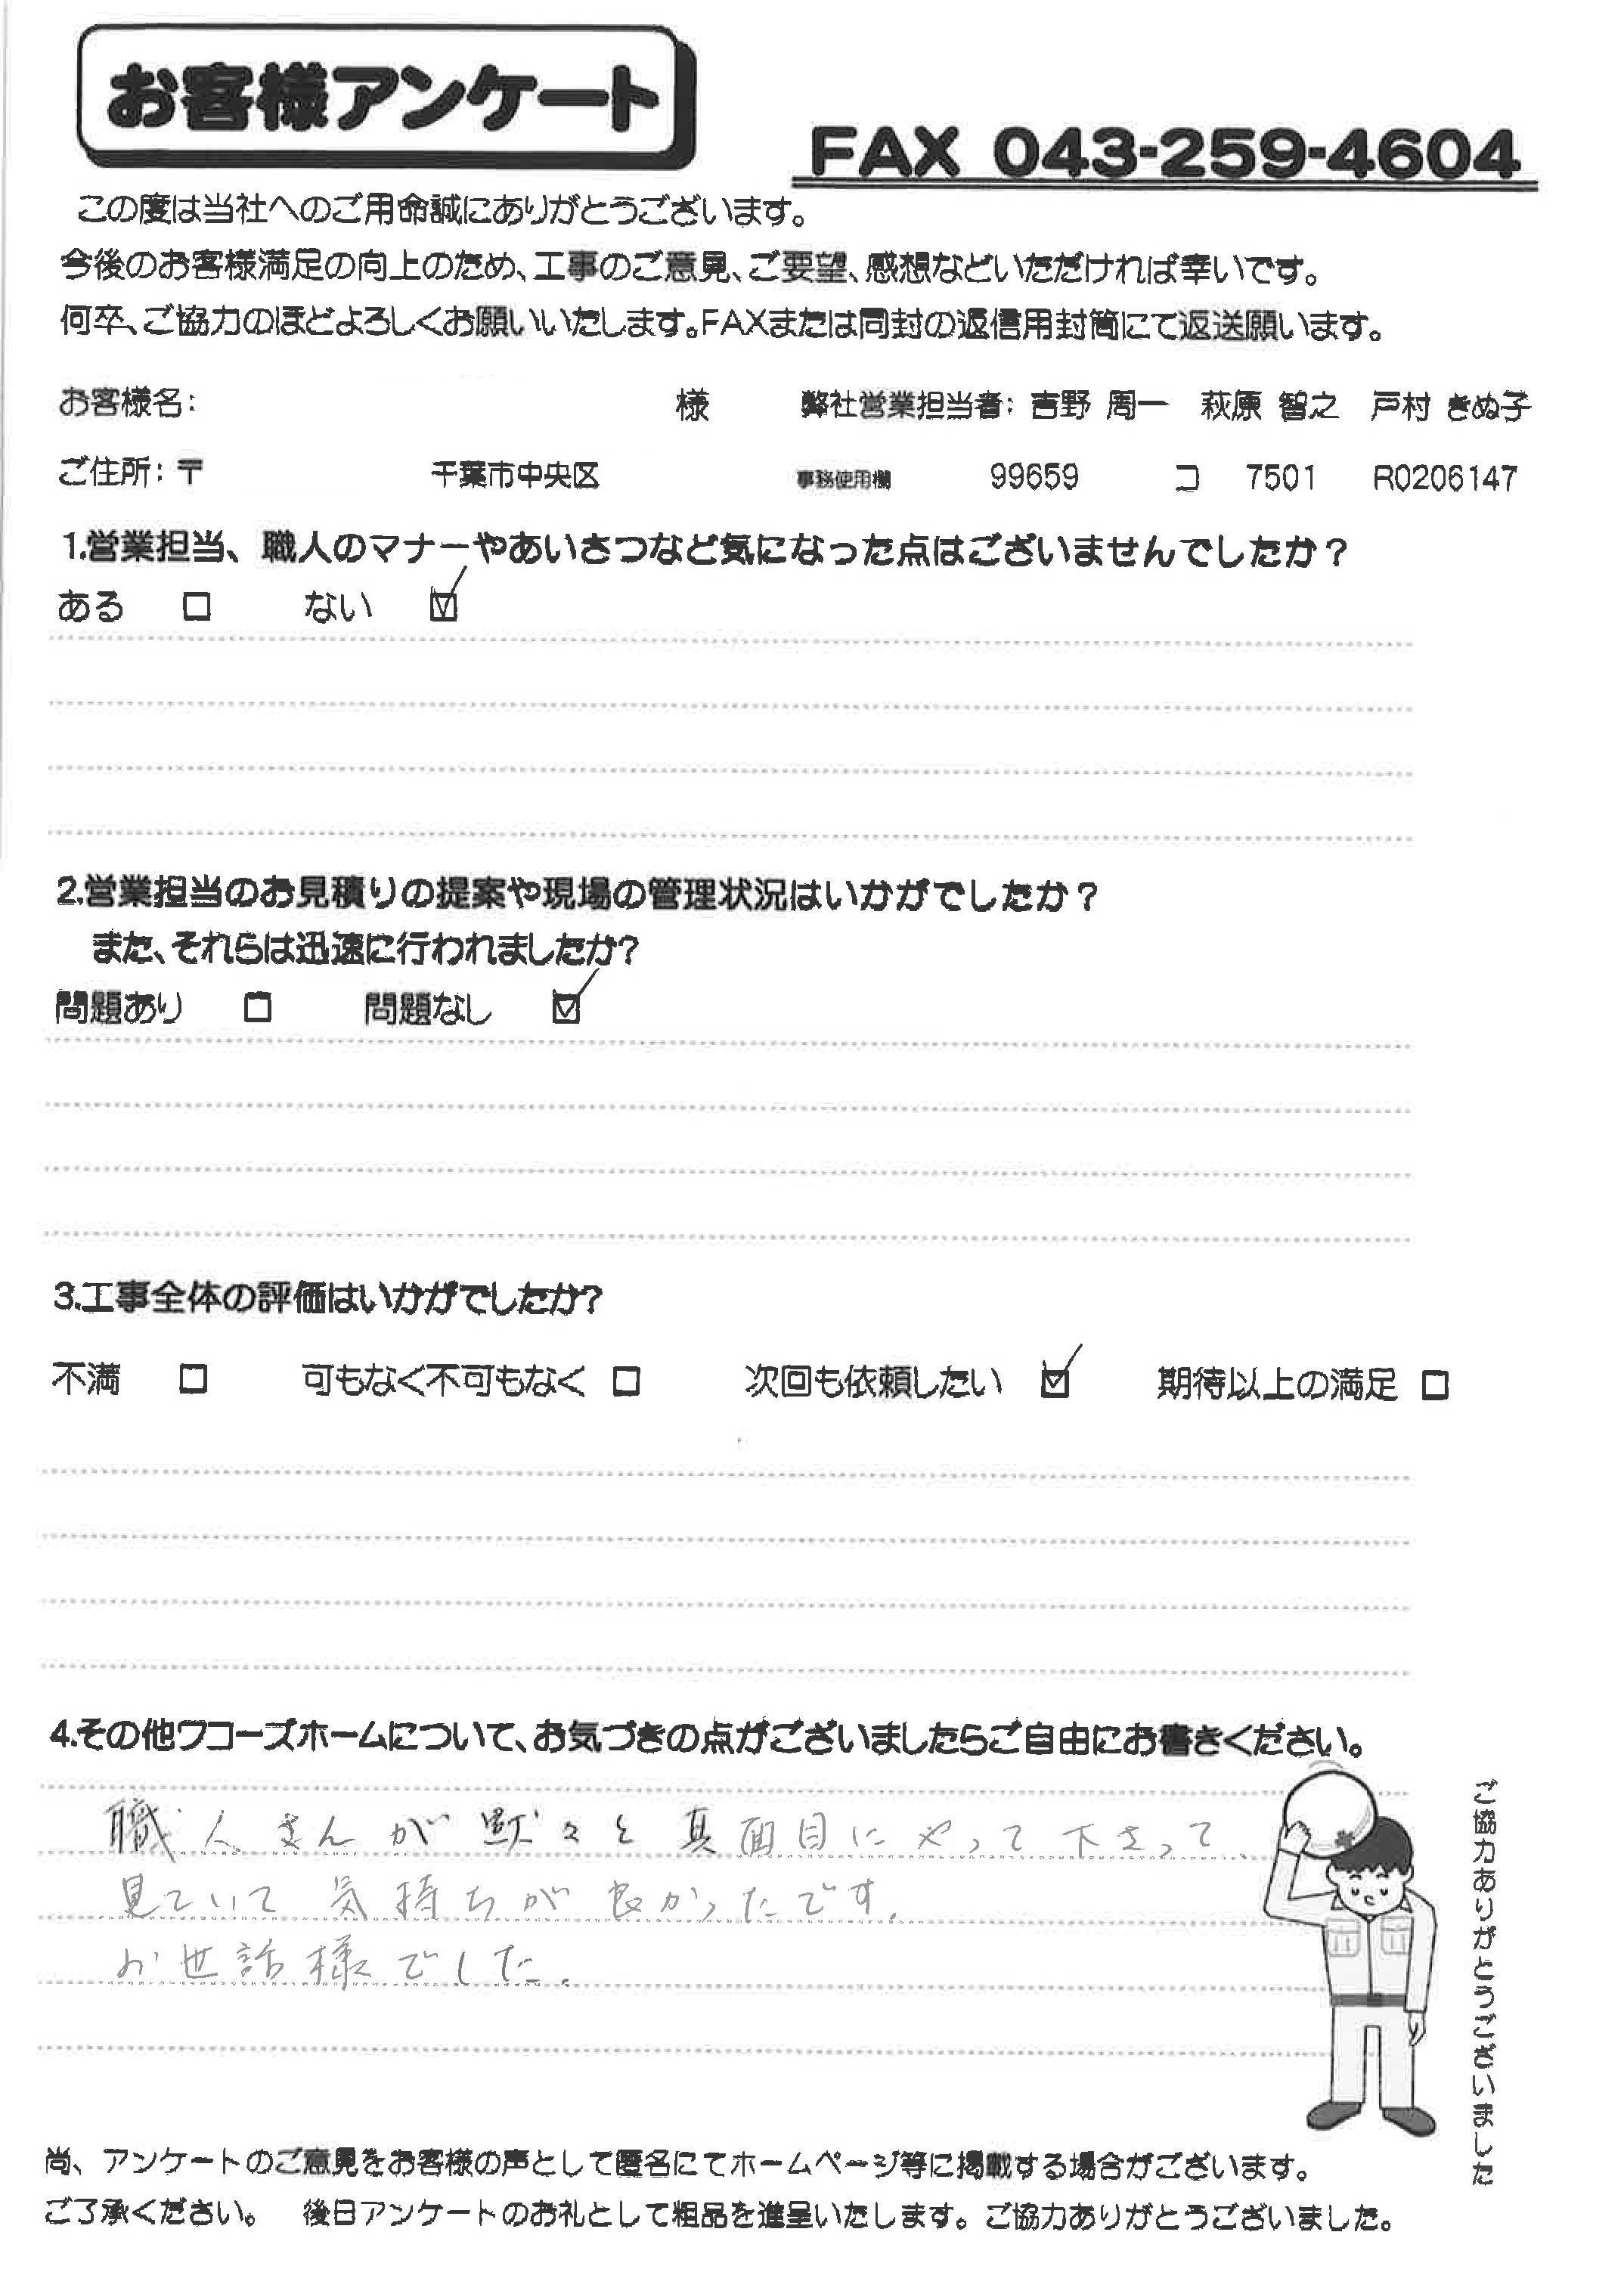 お客様アンケート
FAX 043-259-4604
この度は当社へのご用命誠にありがとうございます。
今後のお客様満足の向上のため、工事のご意見、ご要望、感想などいただければ幸いです。
何卒、ご協力のほどよろしくお願いいたします。FAXまたは同封の返信用封筒にて返送願います。
お客様名: 様 弊社営業担当者: 吉野 周一 萩原 智之 戸村 きぬ子
ご住所: 〒 千葉市中央区 事務使用欄 99659 コ 7501 R0206147
1.営業担当、職人のマナーやあいさつなど気になった点はございませんでしたか？
ある □ ない ☑
2.営業担当のお見積りの提案や現場の管理状況はいかがでしたか？
また、それらは迅速に行われましたか？
問題あり □ 問題なし ☑
3.工事全体の評価はいかがでしたか？
不満 □ 可もなく不可もなく □ 次回も依頼したい ☑ 期待以上の満足 □
4.その他ワコーズホームについて、お気づきの点がございましたらご自由にお書きください。
職人さんが黙々と真面目にやって下さって、
見ていて気持ちが良かったです。
お世話様でした。
ご協力ありがとうございました
尚、アンケートのご意見をお客様の声として匿名にてホームページ等に掲載する場合がございます。
ご了承ください。 後日アンケートのお礼として粗品を進呈いたします。ご協力ありがとうございました。